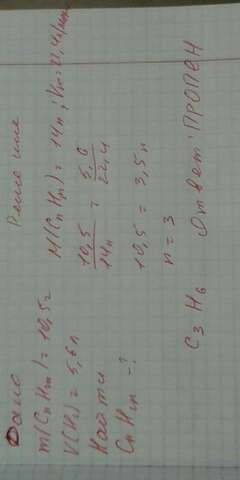 Дано
m(CnH2n) = 10,5г
V(H2) = 5,6л
Найти
CnH2n - ?
Решение
M(CnH2n) = 14n; Vm = 22,4л/моль
10,5 / 14n = 5,6 / 22,4
10,5 = 3,5n
n = 3
C3H6 Ответ: ПРОПЕН